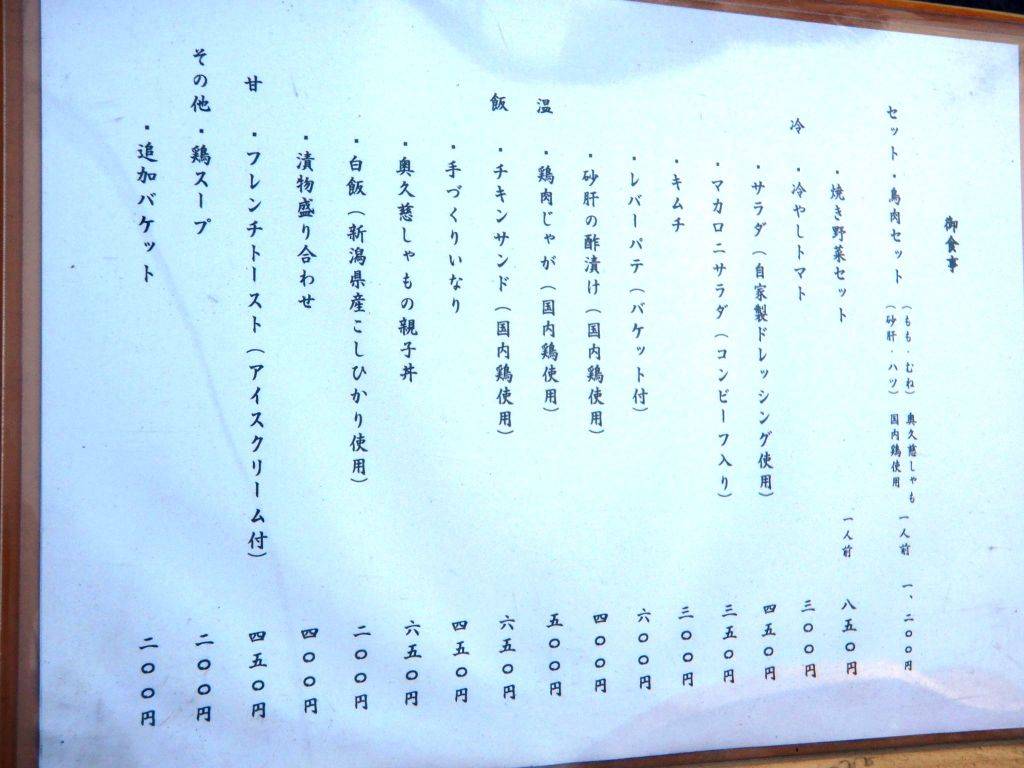 御食事
セット・鳥肉セット (もも・むね) 奥久慈しゃも 一人前 一、二〇〇円
(砂肝・ハツ) 国内鶏使用
・焼き野菜セット 一人前 八五〇円
冷 ・冷やしトマト 三〇〇円
・サラダ(自家製ドレッシング使用) 四五〇円
・マカロニサラダ(コンビーフ入り) 三五〇円
・キムチ 三〇〇円
・レバーパテ(バケット付) 六〇〇円
・砂肝の酢漬け(国内鶏使用) 四〇〇円
温 ・鶏肉じゃが(国内鶏使用) 五〇〇円
飯 ・チキンサンド(国内鶏使用) 六五〇円
・手づくりいなり 四五〇円
・奥久慈しゃもの親子丼 六五〇円
・白飯(新潟県産こしひかり使用) 二〇〇円
・漬物盛り合わせ 四〇〇円
甘 ・フレンチトースト(アイスクリーム付) 四五〇円
その他・鶏スープ 二〇〇円
・追加バケット 二〇〇円